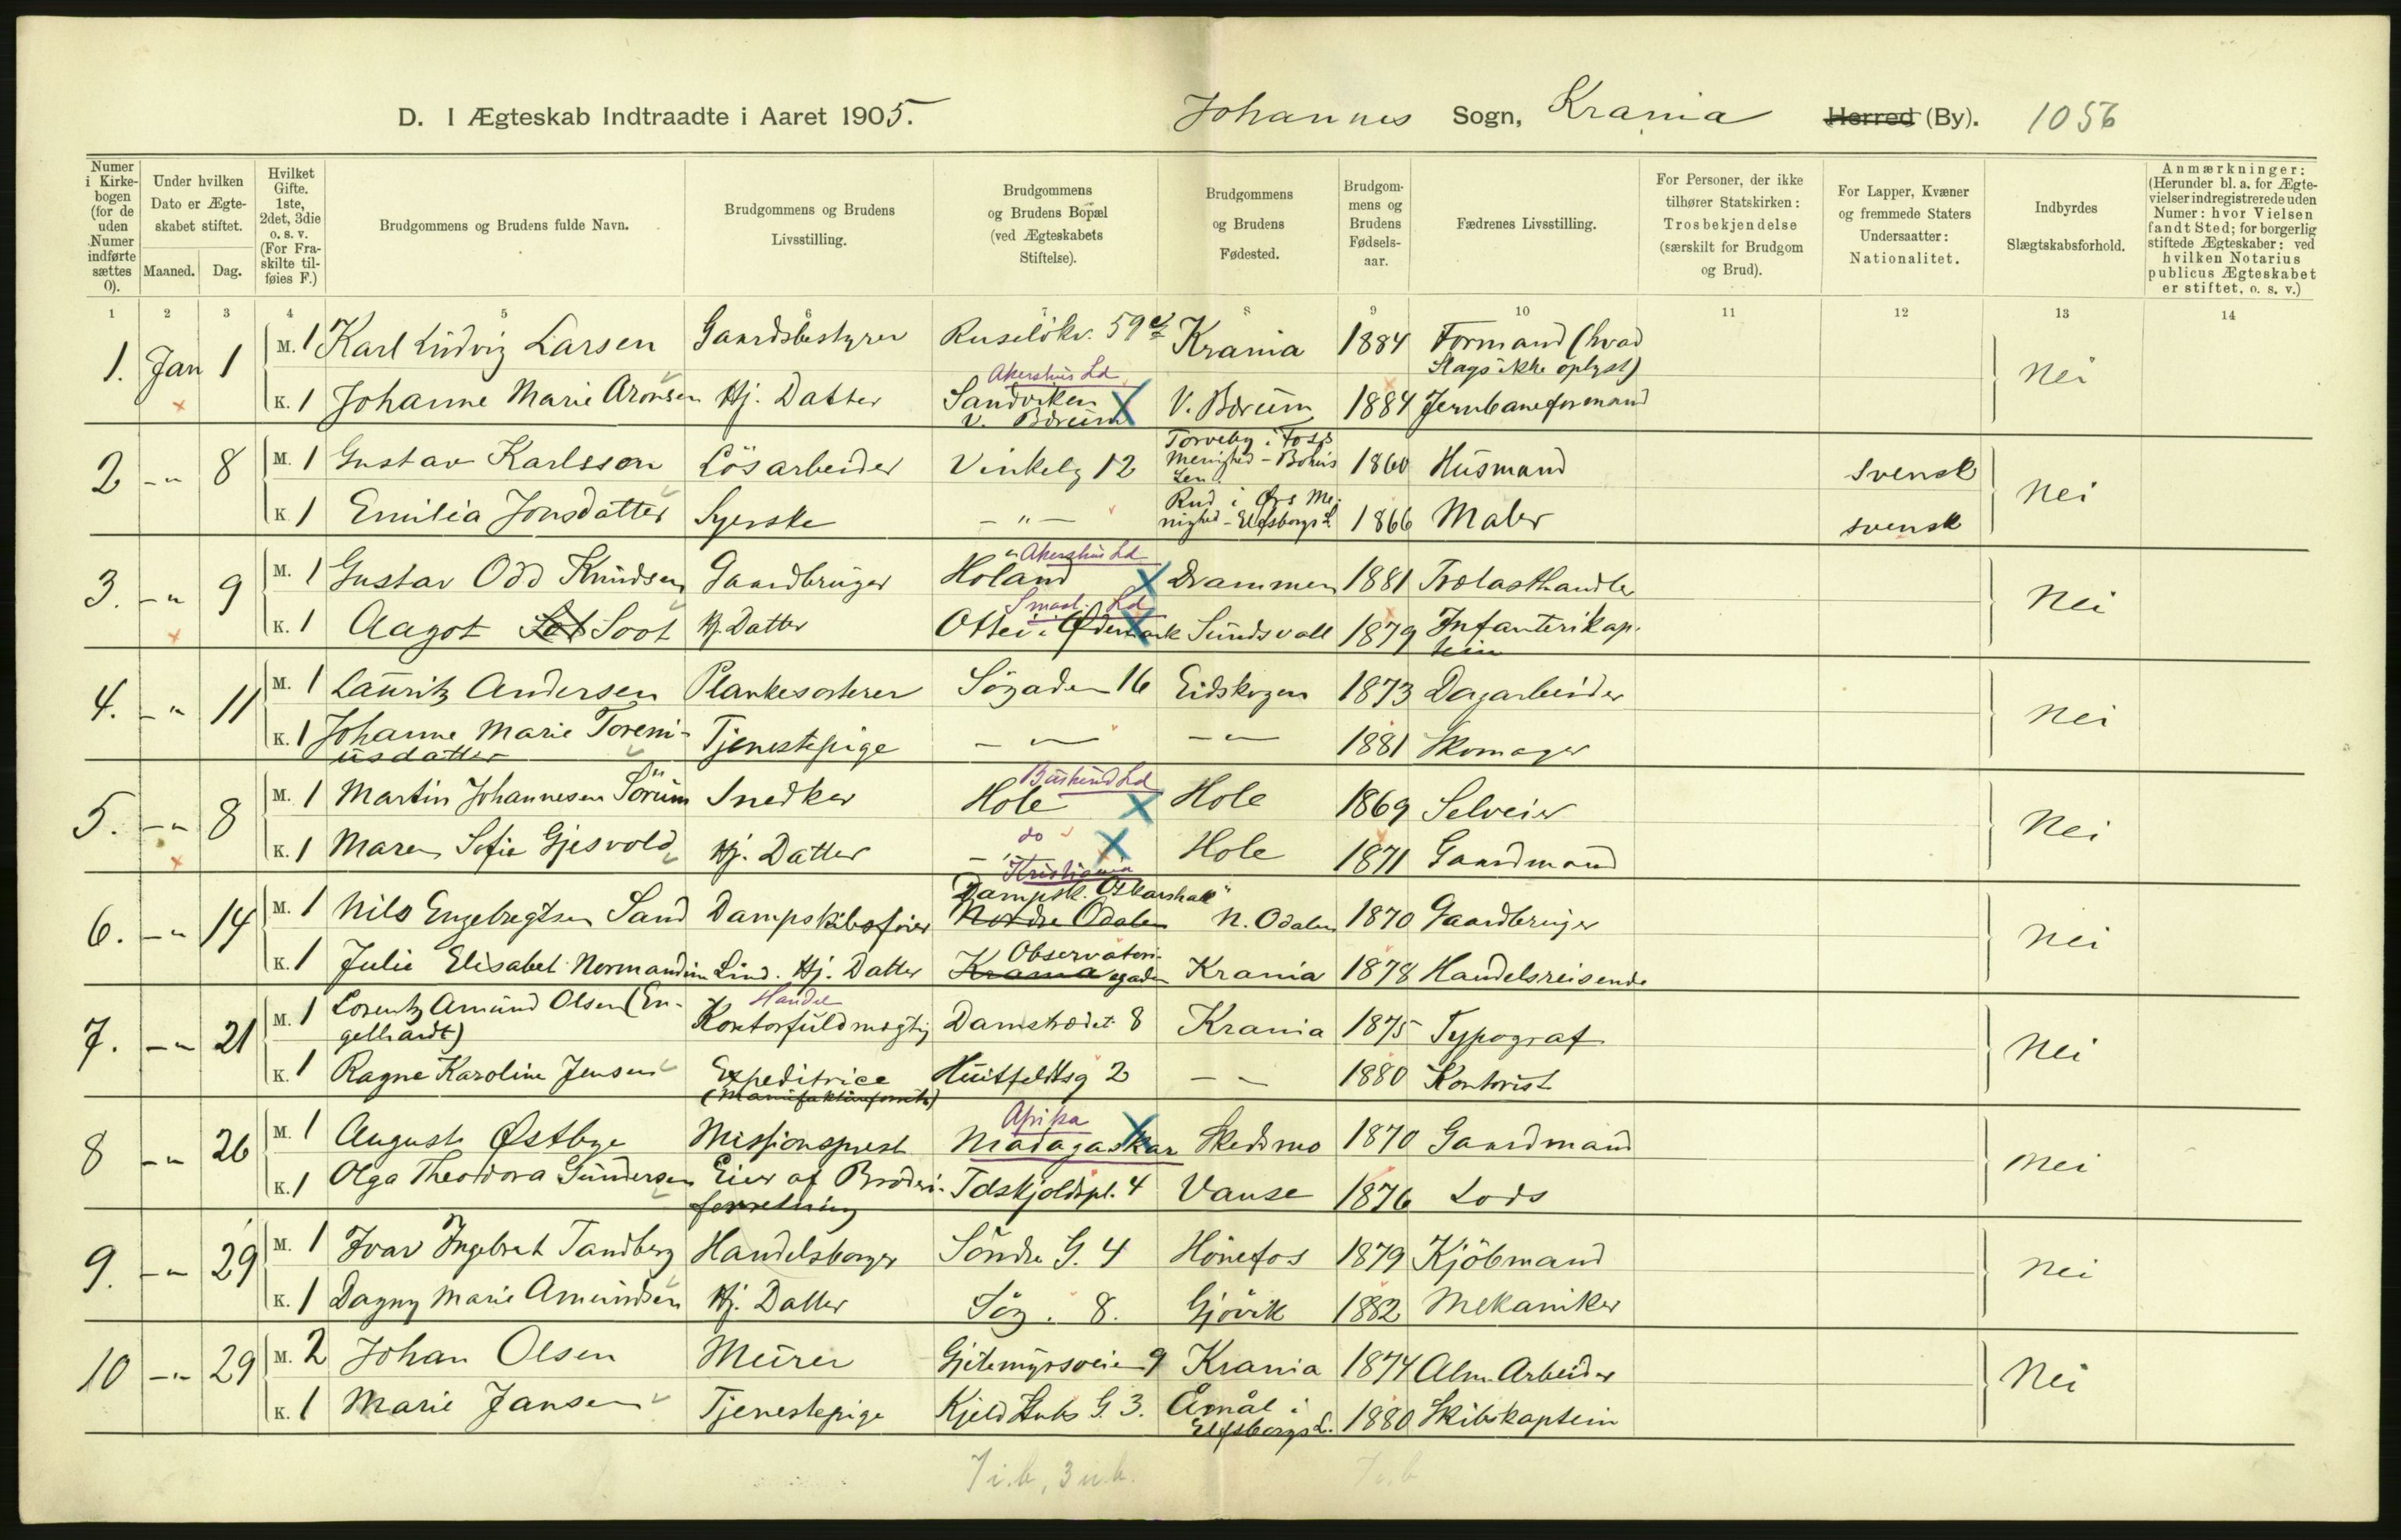 D. I Ægteskab Indtraadte i Aaret 1905. Johannes Sogn, Krania Herred (By). 1056
Numer i Kirkebogen (for de uden Numer indførte sættes 0).
Under hvilken Dato er Ægteskabet stiftet.
Maaned. Dag.
Hvilket Gifte. 1ste, 2det, 3die o. s. v. (For Fraskilte tilføies F.)
Brudgommens og Brudens fulde Navn.
Brudgommens og Brudens Livsstilling.
Brudgommens og Brudens Bopæl (ved Ægteskabets Stiftelse).
Brudgommens og Brudens Fødested.
Brudgommens og Brudens Fødselsaar.
Fædrenes Livsstilling.
For Personer, der ikke tilhører Statskirken: Trosbekjendelse (særskilt for Brudgom og Brud).
For Lapper, Kvæner og fremmede Staters Undersaatter: Nationalitet.
Indbyrdes Slægtskabsforhold.
Anmærkninger: (Herunder bl. a. for Ægtevielser indregistrerede uden Numer: hvor Vielsen fandt Sted; for borgerlig stiftede Ægteskaber: ved hvilken Notarius publicus Ægteskabet er stiftet, o. s. v.)
1 2 3 4 5 6 7 8 9 10 11 12 13 14
1. Jan 1 M. 1 Karl Ludvig Larsen Gaardsbestyrer Ruselökv. 59 Krania 1884 Formand (hvad Slags ikke oplyst) Nei
K. 1 Johanne Marie Aronsen Hj. Datter Akershus Ld Sandviken V. Bærum V. Bærum 1884 Jernbaneformand
2 -"- 8 M. 1 Gustav Karlsson Lösarbeider Vinkelg 12 Torveby i Foss Menighed - Bohus Len 1860 Husmand svensk Nei
K 1 Emilia Jonsdatter Syerske -"- Rud i Ørs Menighed - Elfsborgs L 1866 Maler svensk
3. -"- 9 M. 1 Gustav Odd Knudsen Gaardbruger Akershus Ld Höland Drammen 1881 Trælasthandler Nei
K. 1 Aagot Soot Hj. Datter Smaal. Ld Ottei i Ødemark Sundsvall 1879 Infanterikaptein
4. -"- 11 M. 1 Lauritz Andersen Plankesorterer Søgaden 16 Eidskogen 1873 Dagarbeider Nei
K. 1 Johanne Marie Toreniusdatter Tjenestepige -"- -"- 1881 Skomager
5. -"- 8 M. 1 Martin Johannesen Sörum Snedker Buskerud Ld Hole Hole 1869 Selveier Nei
K. 1 Maren Sofie Gjesvold Hj. Datter do -"- Hole 1871 Gaardmand
6. -"- 14 M. 1 Nils Engebregtsen Sand Dampskibsfører Kristiania Dampsk. "Oskarshall" Nordre Odalen N. Odalen 1870 Gaardbruger Nei
K. 1 Julie Elisabet Normandin Lind. Hj. Datter Krania Observatoriegaden Krania 1878 Handelsreisende
7. -"- 21 M. 1 Lorentz Amund Olsen (Engelhardt) Handel Kontorfuldmægtig Damstrædet 8 Krania 1875 Typograf Nei
K. 1 Ragna Karoline Jensen Expeditrice (Manufakturforretn) Huitfeldtsg 2 -"- 1880 Kontorist
8 -"- 26 M. 1 August Østbye Missionsprest Afrika Madagaskar Skedsmo 1870 Gaardmand Nei
K. 1 Olga Theodora Gundersen Eier af Broderiforretning Tdskjoldspl. 4 Vanse 1876 Lods
9. -"- 29 M. 1 Ivar Ingebret Tandberg Handelsborger Söndre G. 4 Hönefos 1879 Kjöbmand Nei
K. 1 Dagny Marie Amundsen Hj. Datter Søg. 8. Gjövik 1882 Mekaniker
10 -"- 29 M. 2 Johan Olsen Murer Gjetemyrsveien 9 Krania 1874 Alm. Arbeider Nei
K. 1 Marie Jansen Tjenestepige Kjeld Stubs G. 3. Åmål i Elfsborgs L. 1880 Skibskaptein
7 i.b, 3 u.b.